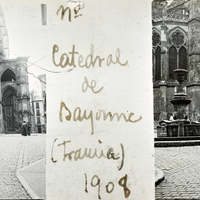 Nº
Catedral
de
Bayonne
(Francia)
1908